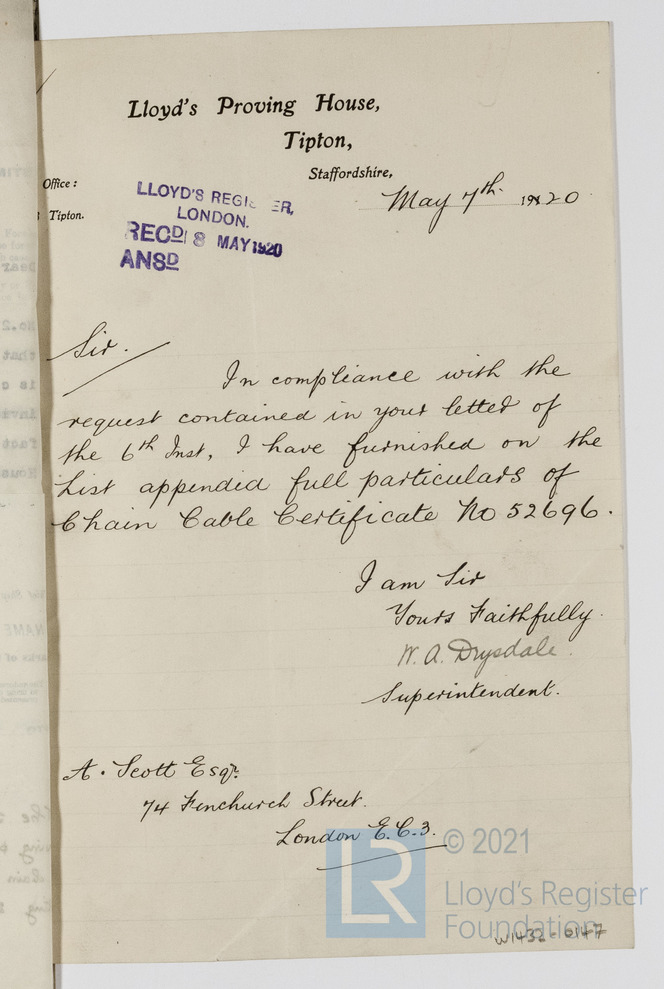 Lloyd's Proving House,
Tipton,
Staffordshire,
Office:
Tipton.
May 7th 1920
LLOYD'S REGISTER,
LONDON.
RECD 8 MAY 1920
ANSD
Sir.
In compliance with the
request contained in your letter of
the 6th Inst, I have furnished on the
List appended full particulars of
Chain Cable Certificate No 52696.
I am Sir
Yours Faithfully.
W. A. Drysdale.
Superintendent.
A. Scott Esqr.
74 Fenchurch Street.
London E.C.3.
LR
© 2021
Lloyd's Register
Foundation
W1432-0147